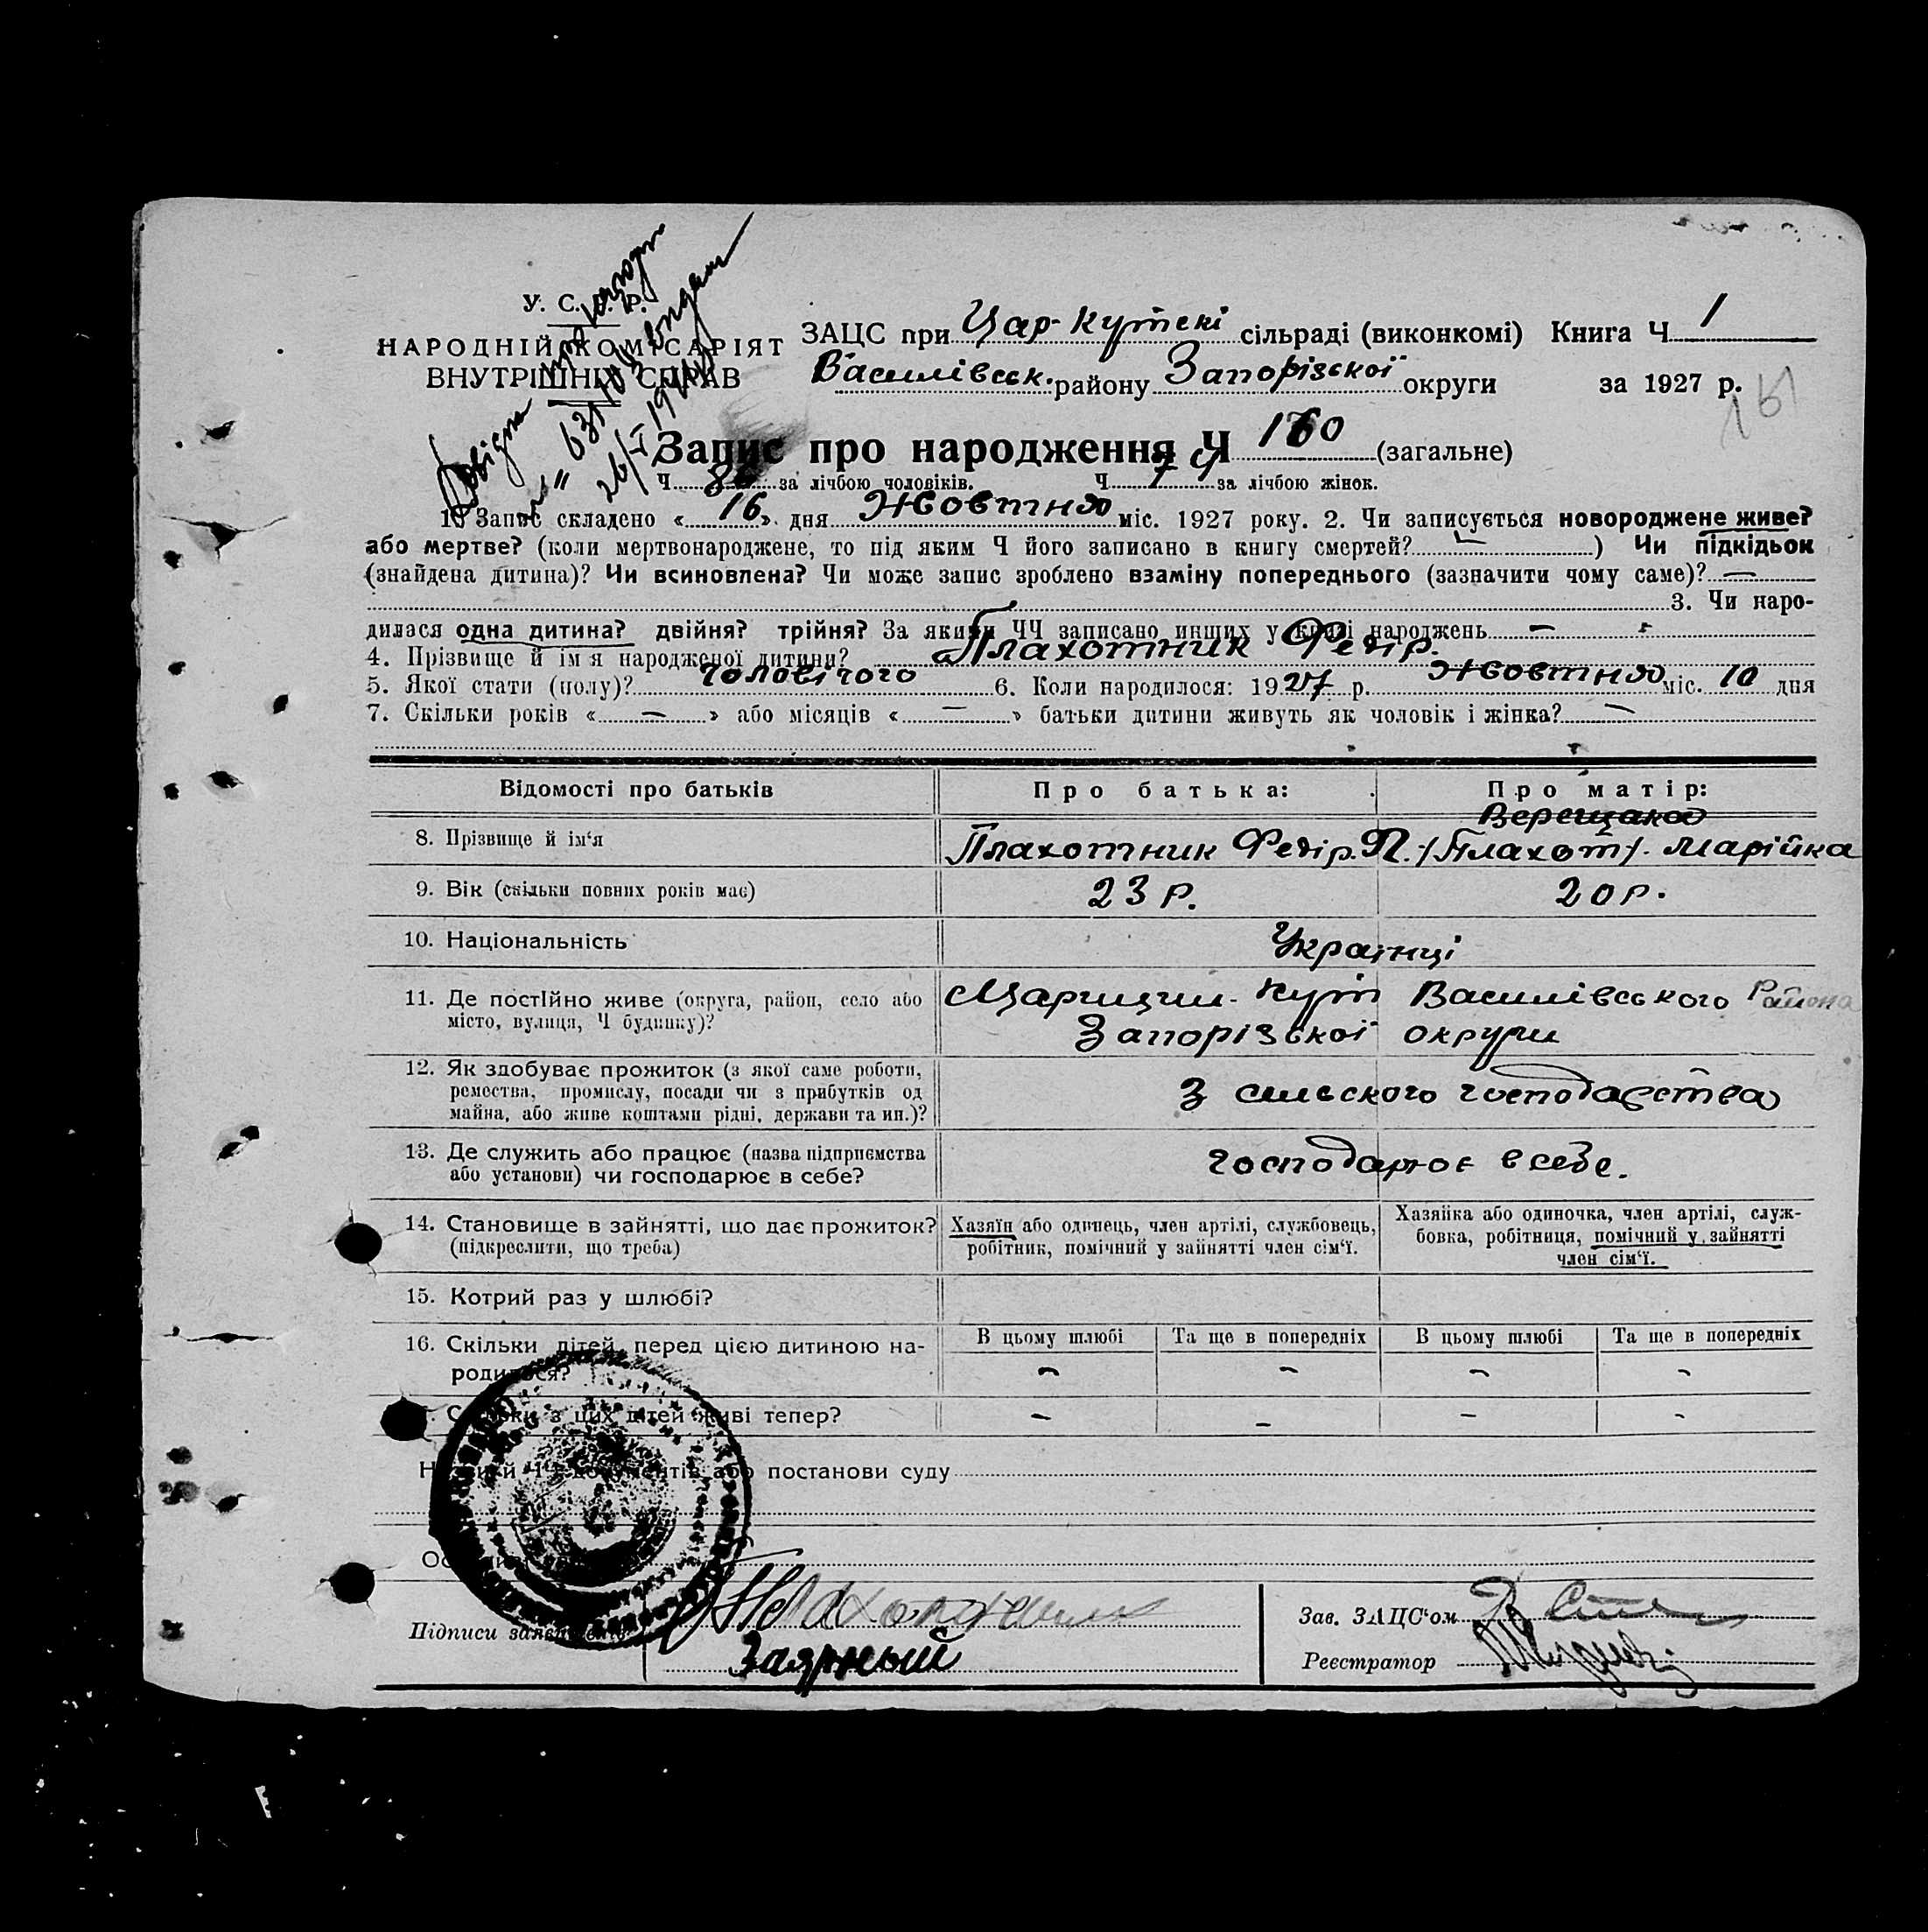 У. С. Р. Р.
НАРОДНІЙ КОМІСАРІЯТ
ВНУТРІШНІХ СПРАВ
ЗАЦС при Цар-Кутскі сільраді (виконкомі) Книга Ч 1
Василівськ. району Запорізської округи за 1927 р.
161
Запис про народження Ч 160 (загальне)
Ч 86 за лічбою чоловіків. Ч 74 за лічбою жінок.
1. Запис складено «16» дня Жовтня міс. 1927 року. 2. Чи записується новороджене живе?
або мертве? (коли мертвонароджене, то під яким Ч його записано в книгу смертей? —) Чи підкідьок
(знайдена дитина)? Чи всиновлена? Чи може запис зроблено взаміну попереднього (зазначити чому саме)? —
3. Чи наро-
дилася одна дитина? двійня? трійня? За якими ЧЧ записано инших у книзі народжень —
4. Прізвище й ім'я народженої дитини? Плахотник Федір.
5. Якої стати (полу)? чоловічого 6. Коли народилося: 1927 р. Жовтня міс. 10 дня
7. Скільки років «—» або місяців «—» батьки дитини живуть як чоловік і жінка? —
Відомості про батьків Про батька: Про матір:
Верещака
8. Прізвище й ім'я Плахотник Федір. П. /Плахот/. Марійка
9. Вік (скільки повних років має) 23 р. 20 р.
10. Національність Українці
11. Де постійно живе (округа, район, село або Царицин-Кут Василівського Района
місто, вулиця, Ч будинку)? Запорізської округи
12. Як здобуває прожиток (з якої саме роботи,
ремества, промислу, посади чи з прибутків од з сильского господарства
майна, або живе коштами рідні, держави та ин.)?
13. Де служить або працює (назва підприємства господарює в себе.
або установи) чи господарює в себе?
14. Становище в зайнятті, що дає прожиток? Хазяїн або одинець, член артілі, службовець, Хазяйка або одиночка, член артілі, служ-
(підкреслити, що треба) робітник, помічний у зайнятті член сім'ї. бовка, робітниця, помічний у зайнятті
член сім'ї.
15. Котрий раз у шлюбі?
16. Скільки дітей перед цією дитиною на- В цьому шлюбі Та ще в попередніх В цьому шлюбі Та ще в попередніх
родилося? — — — —
17. Скільки з цих дітей живі тепер? — — — —
Назви й ЧЧ документів або постанови суду
Підписи заявителів Плахотник
Заярный
Зав. ЗАЦС'ом
Реєстратор